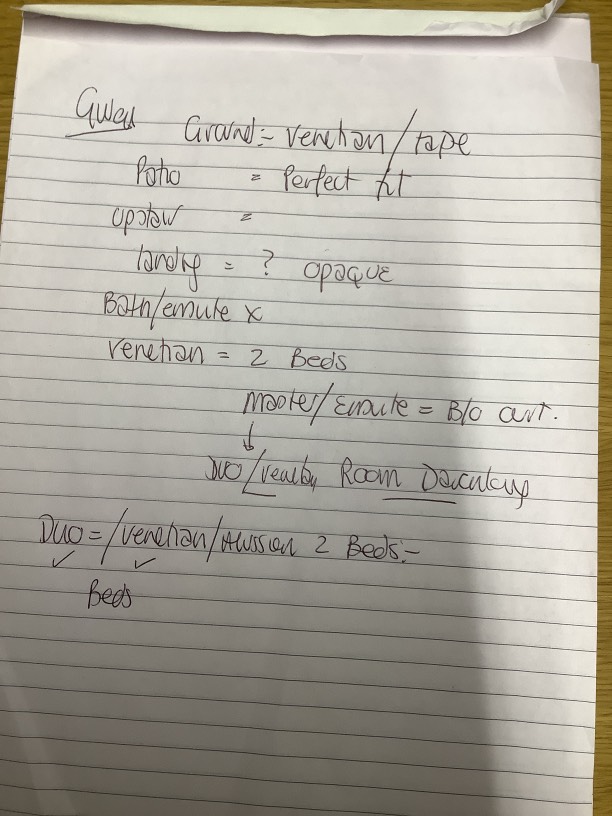 Gwen Ground:- Venetian/tape
Patio = Perfect fit
Upstair =
landing = ? opaque
Bath/ensuite x
Venetian = 2 Beds
Master/Ensuite = B/O curt.
↓
Duo/ Room
Duo = /Venetian/ 2 Beds:-
✓ ✓
Beds